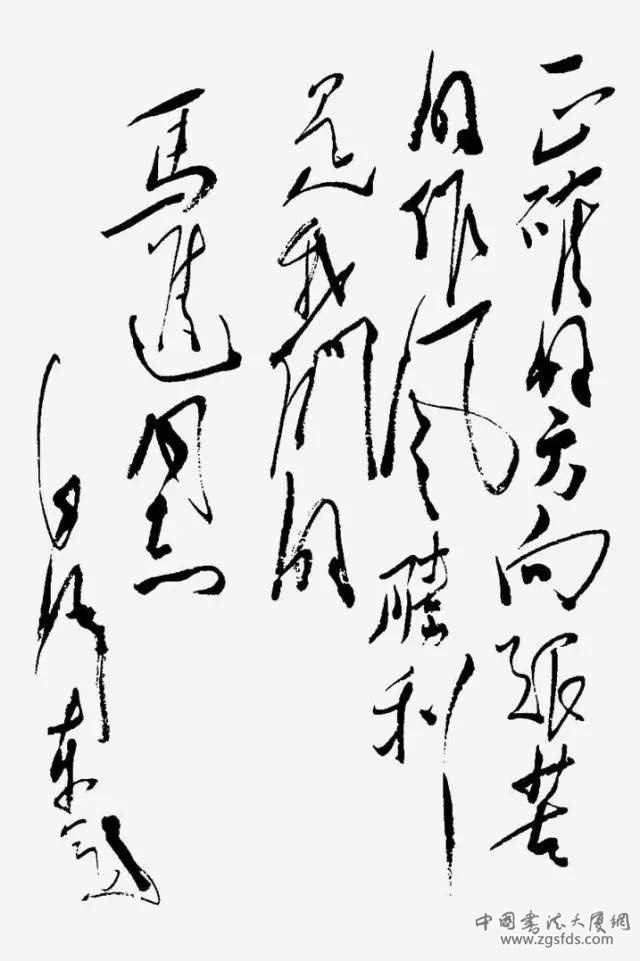 正確的方向艱苦
的作風勝利
是我們的
馬進同志
毛澤東題
中国書法大厦網
www.zgsfds.com